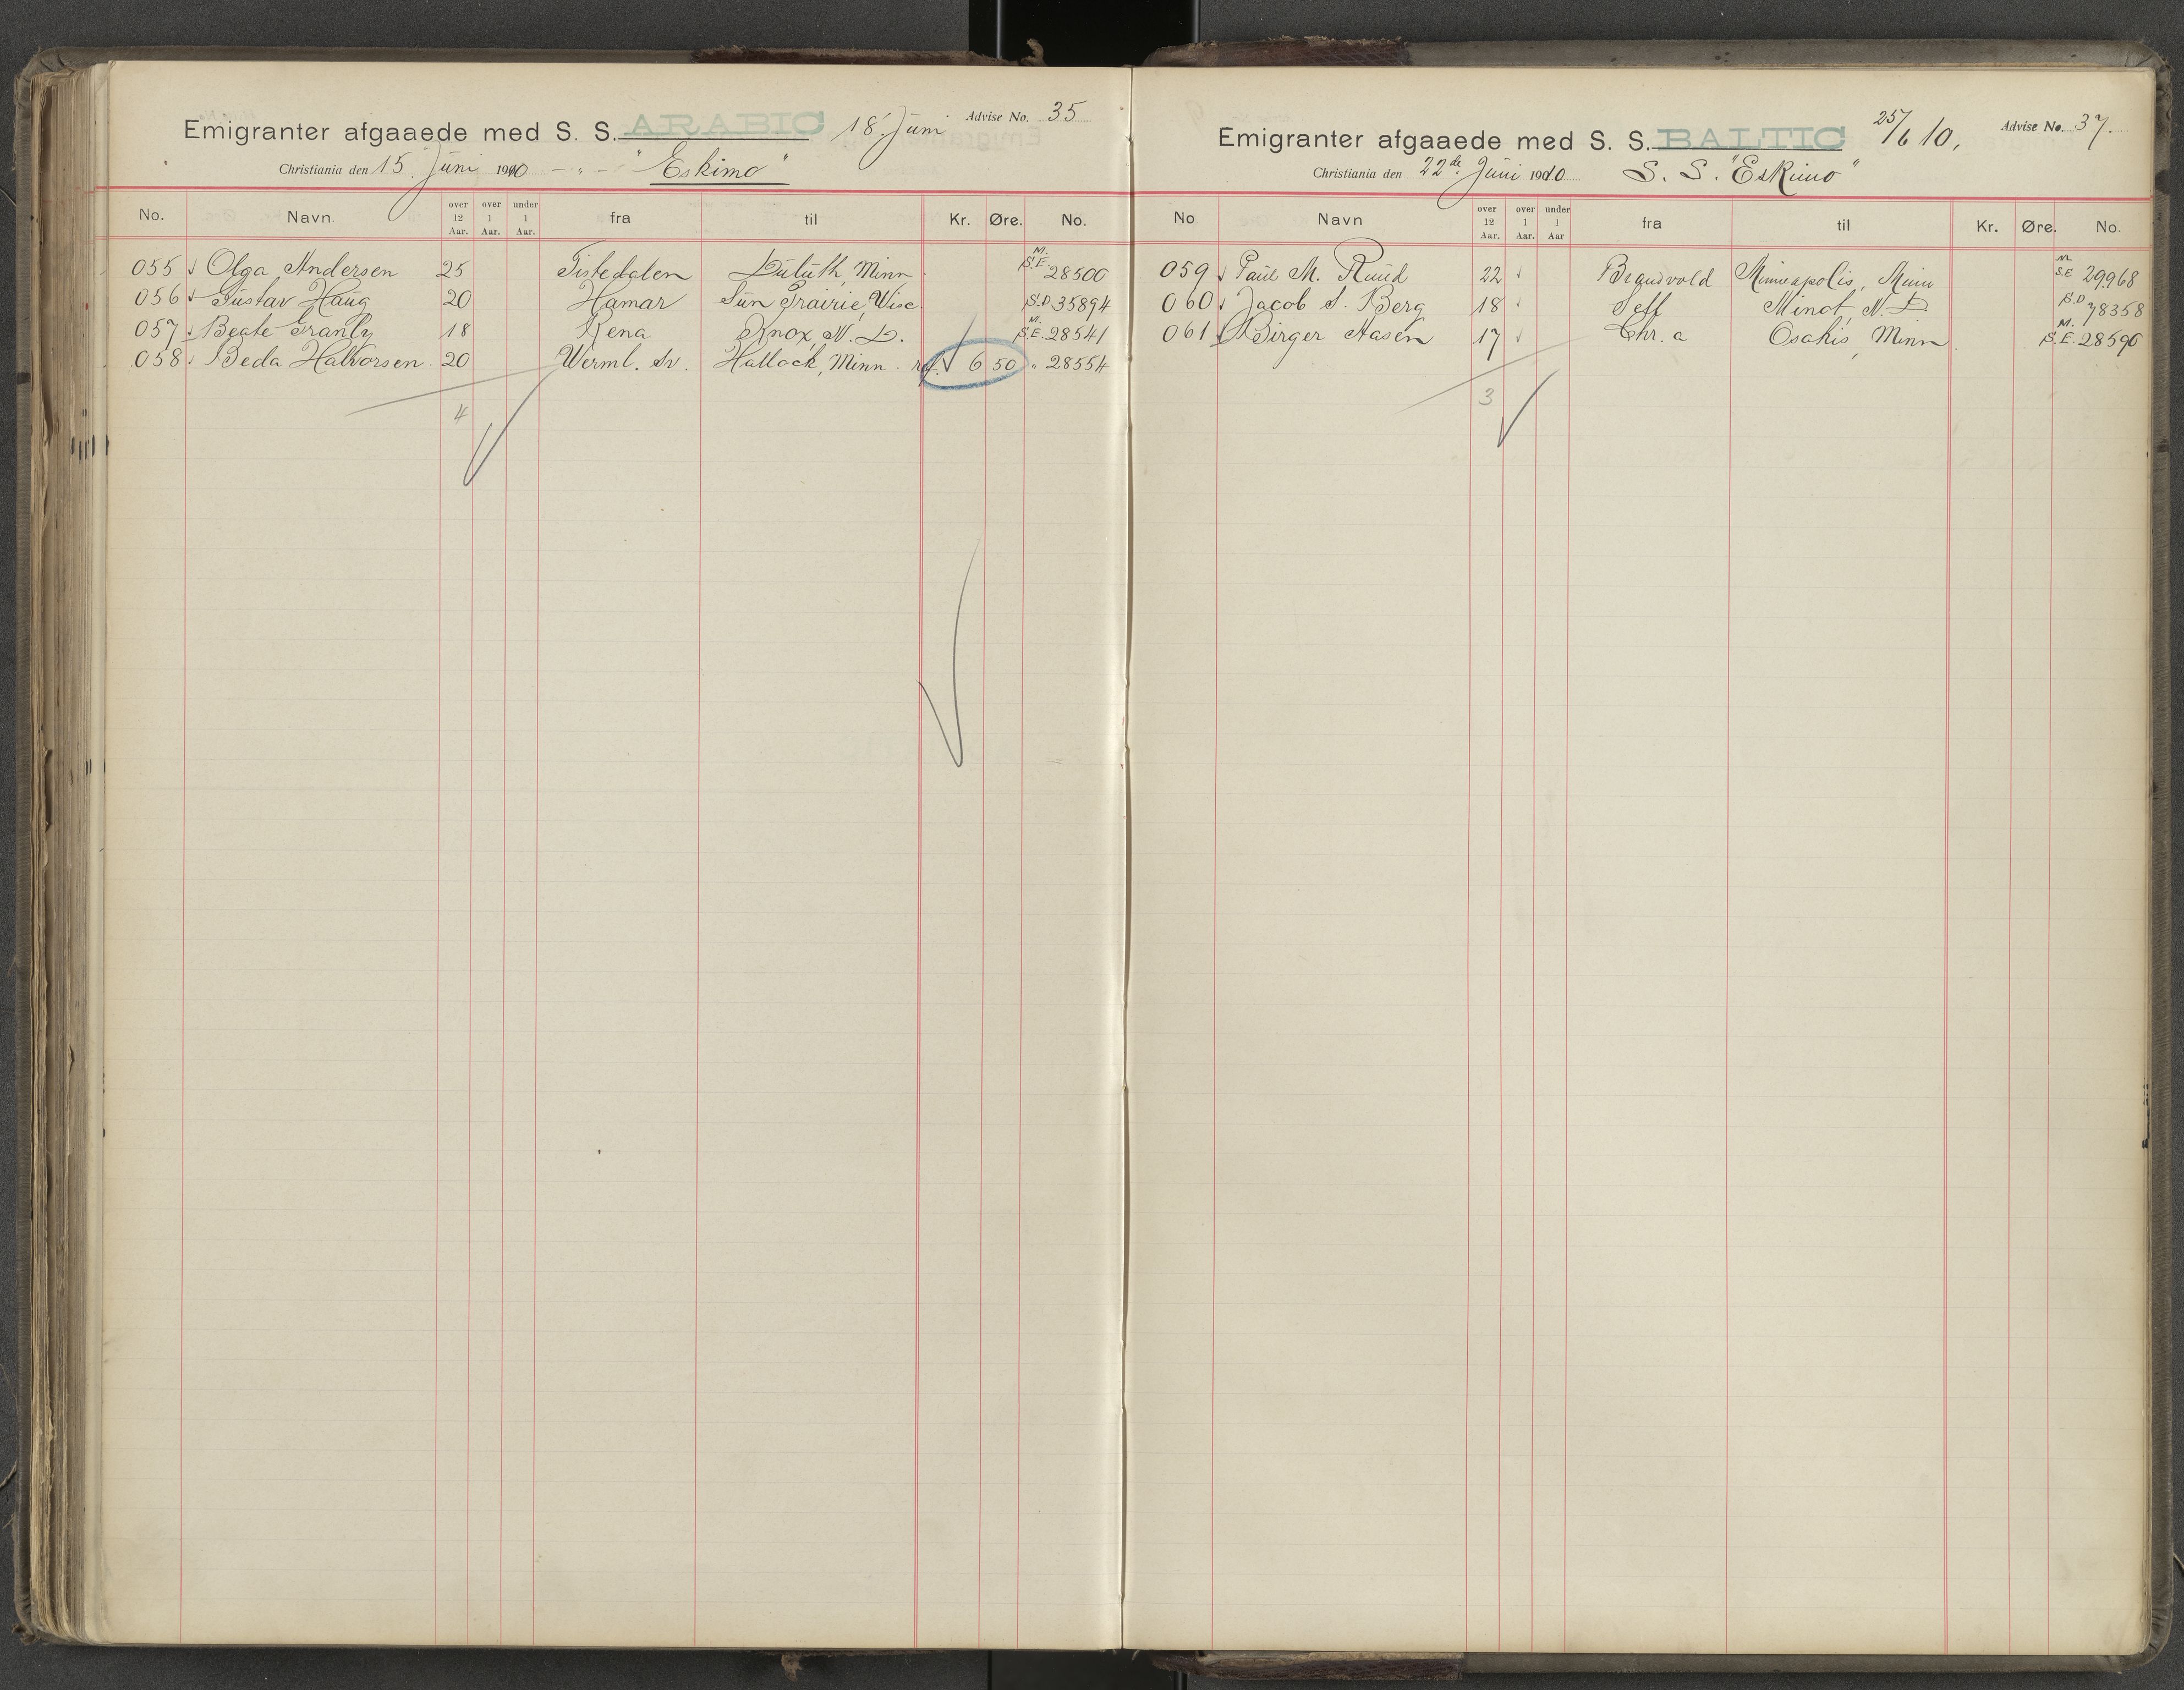 Emigranter afgaaede med S. S. ARABIC 18' Juni Advise No. 35
Christiania den 15. Juni 1910 - " - "Eskimo"
No. Navn. over 12 Aar. over 1 Aar. under 1 Aar. fra til Kr. Øre. No.
055 Olga Andersen 25 Tistedalen Duluth, Minn M. S.E. 28500
056 Gustav Haug 20 Hamar Sun Prairie, Wisc. S.D. 35894
057 Beate Tranby 18 Rena Knox, N. D. M. S.E. 28541
058 Beda Halvorsen 20 Werml. Sv. Hallock, Minn. 6 50 " 28554
4
Emigranter afgaaede med S. S. BALTIC 25/6 10. Advise No. 37.
Christiania den 22de Juni 1910 S. S. "Eskimo"
No Navn over 12 Aar. over 1 Aar. under 1 Aar fra til Kr. Øre. No.
059 Paul M. Ruud 22 Minneapolis, Minn M. S.E 29968
060 Jacob S. Berg 18 Minot, N. D. S.D 78358
061 Birger Aasen 17 Chr. a Osakis, Minn. M. S.E. 28590
3